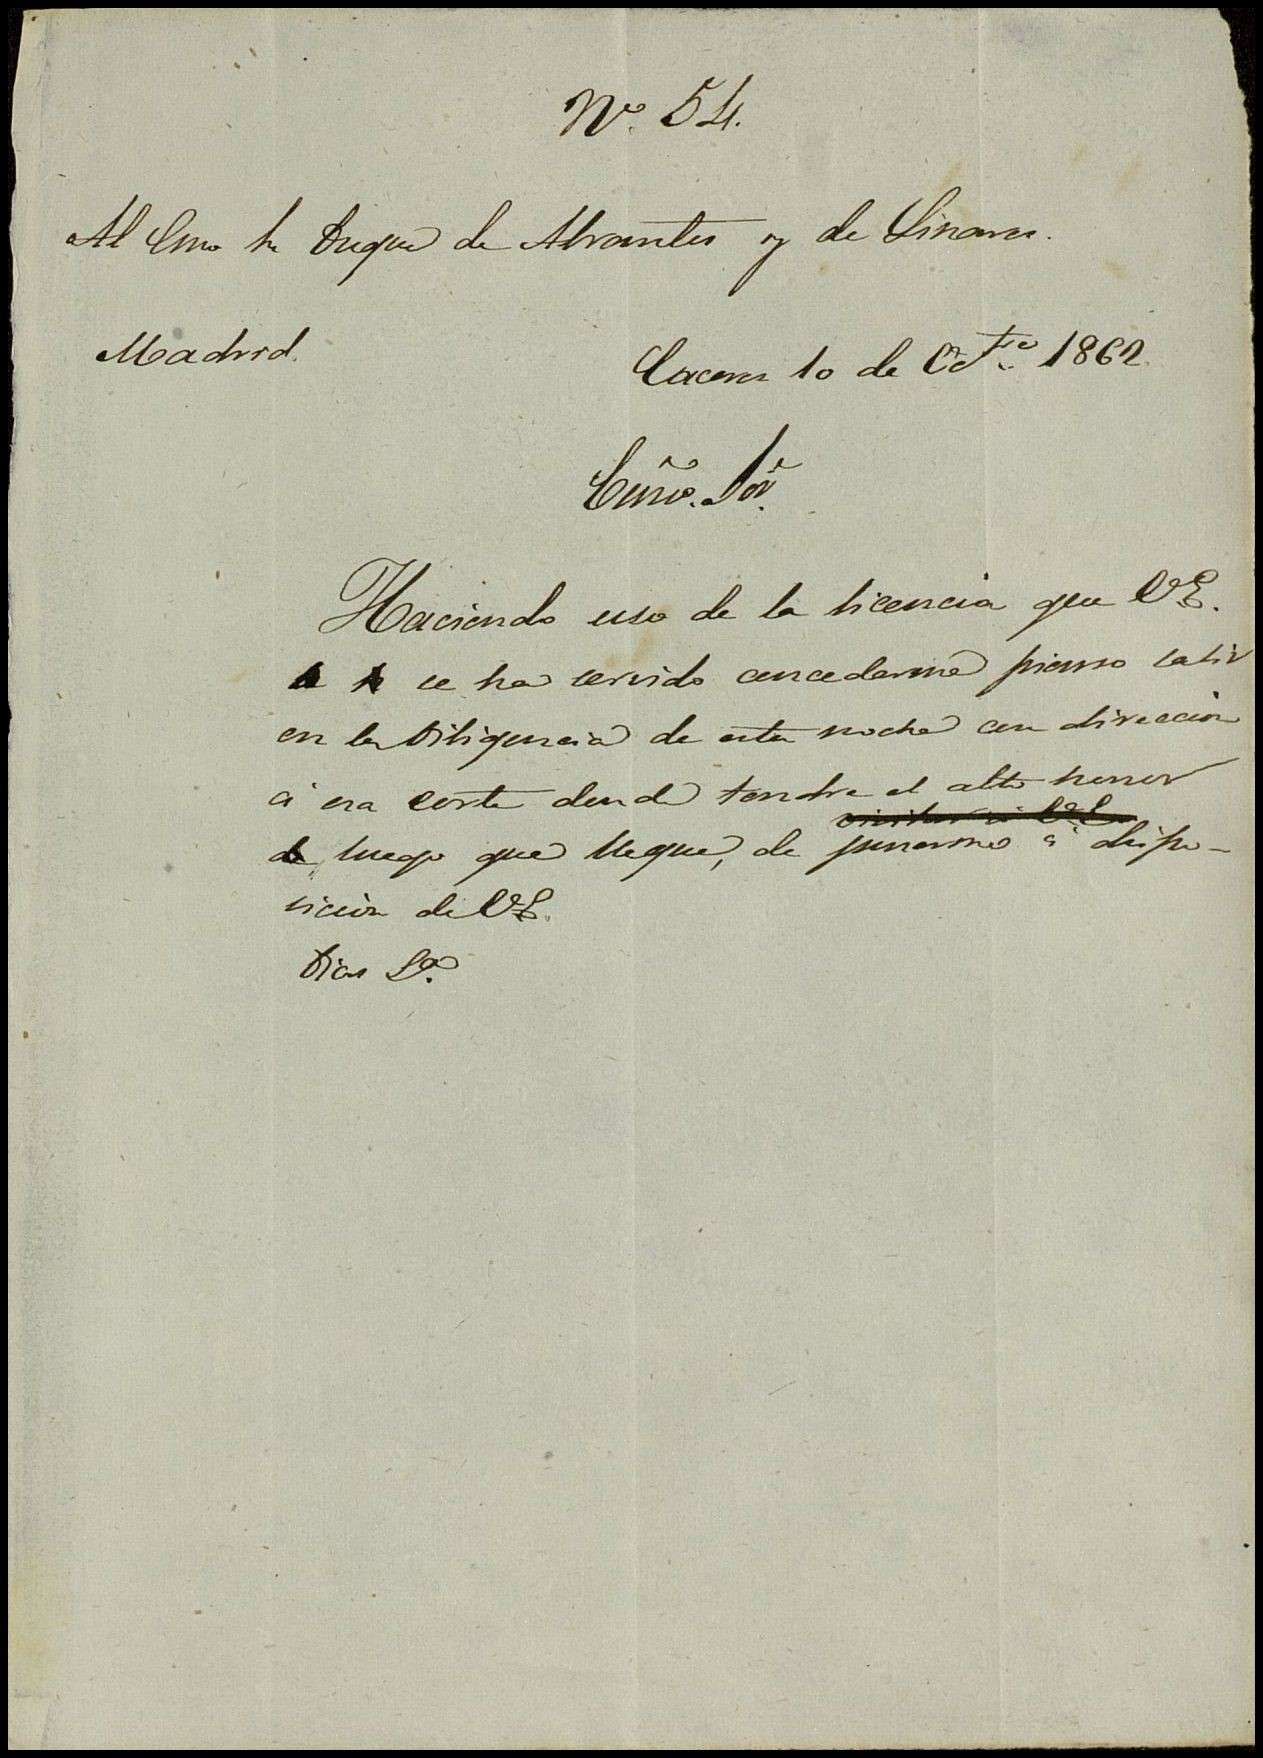 Nº. 54.
Al Emo Sr Duque de Abrantes y de Linares.
Madrid.
Caceres 10 de Octe 1862.
Emo. Sor.
Haciendo uso de la licencia que V.E.
se ha servido concederme pienso salir
en la Diligencia de esta noche con direccion
á esa corte donde tendre el alto honor
visitar á V.E.
de luego que llegue, de ponerme á dispo-
sicion de V.E.
Dios &ª.